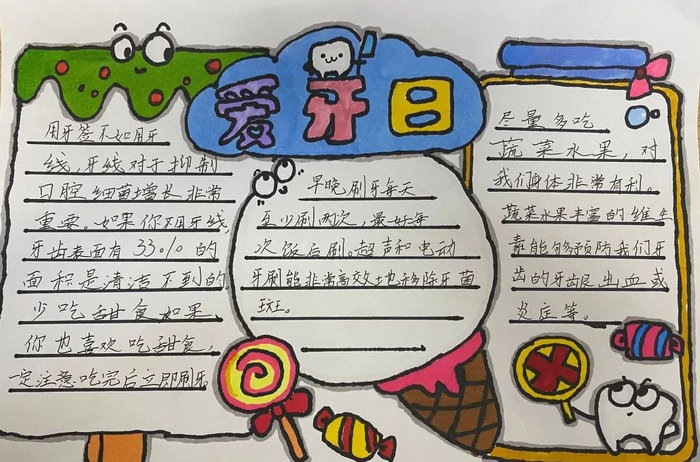 爱牙日
用牙签不如用牙
线,牙线对于抑制
口腔细菌增长非常
重要。如果你不用牙线,
牙齿表面有33%的
面积是清洁不到的。
少吃甜食如果,
你也喜欢吃甜食,
一定注意吃完后立即刷牙
早晚刷牙每天
至少刷两次,最好每
次饭后刷。超声和电动
牙刷能非常高效地移除牙菌
斑。
尽量多吃
蔬菜水果,对
我们身体非常有利。
蔬菜水果丰富的维生
素能够预防我们牙
齿的牙龈出血或
炎症等。